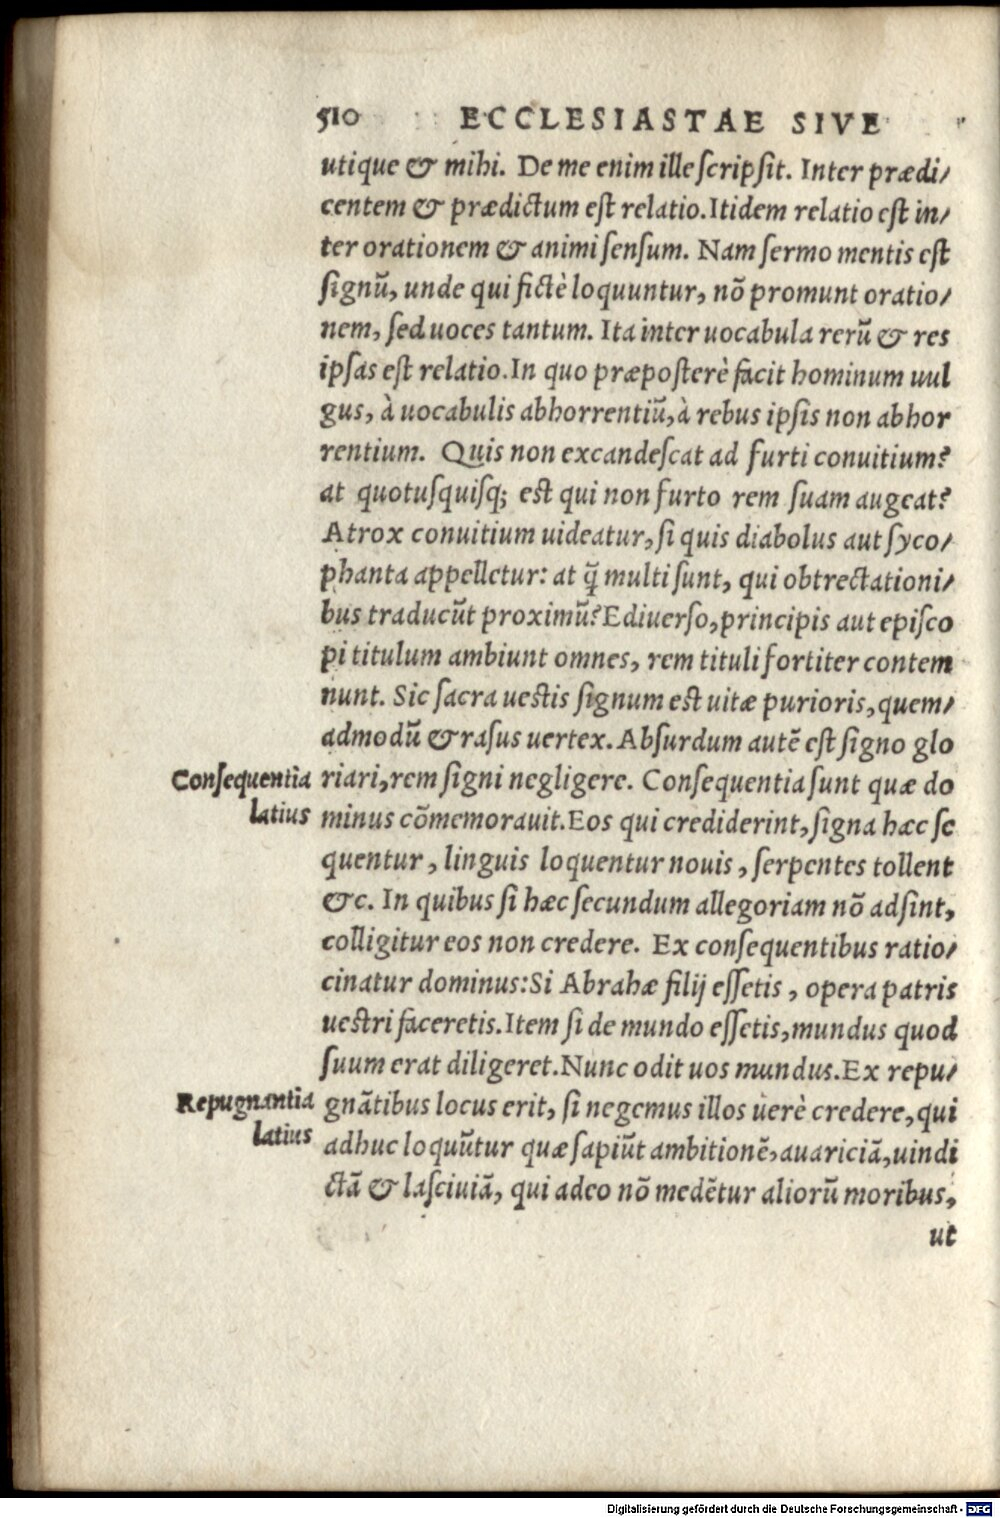 510 ECCLESIASTAE SIVE
utique & mihi. De me enim ille ſcripſit. Inter prædi/
centem & prædictum eſt relatio. Itidem relatio eſt in/
ter orationem & animi ſenſum. Nam ſermo mentis eſt
ſignū, unde qui fictè loquuntur, nō promunt oratio/
nem, ſed uoces tantum. Ita inter uocabula rerū & res
ipſas eſt relatio. In quo præpoſterè facit hominum uul
gus, à uocabulis abhorrentiū, à rebus ipſis non abhor
rentium. Quis non excandeſcat ad furti conuitium?
at quotuſquiſq; eſt qui non furto rem ſuam augeat?
Atrox conuitium uideatur, ſi quis diabolus aut ſyco/
phanta appelletur: at q̄ multi ſunt, qui obtrectationi/
bus traducūt proximū? E diuerſo, principis aut epiſco
pi titulum ambiunt omnes, rem tituli fortiter contem
nunt. Sic ſacra ueſtis ſignum eſt uitæ purioris, quem/
admodū & raſus uertex. Abſurdum autē eſt ſigno glo
Conſequentia
latius
riari, rem ſigni negligere. Conſequentia ſunt quæ do
minus cōmemorauit. Eos qui crediderint, ſigna hæc ſe
quentur, linguis loquentur nouis, ſerpentes tollent
&c. In quibus ſi hæc ſecundum allegoriam nō adſint,
colligitur eos non credere. Ex conſequentibus ratio/
cinatur dominus: Si Abrahæ filij eſſetis, opera patris
ueſtri faceretis. Item ſi de mundo eſſetis, mundus quod
ſuum erat diligeret. Nunc odit uos mundus. Ex repu/
Repugnantia
latius
gnātibus locus erit, ſi negemus illos uerè credere, qui
adhuc loquūtur quæ ſapiūt ambitionē, auariciā, uindi
ctā & laſciuiā, qui adeo nō medētur aliorū moribus,
ut
Digitalisierung gefördert durch die Deutsche Forschungsgemeinschaft - DFG